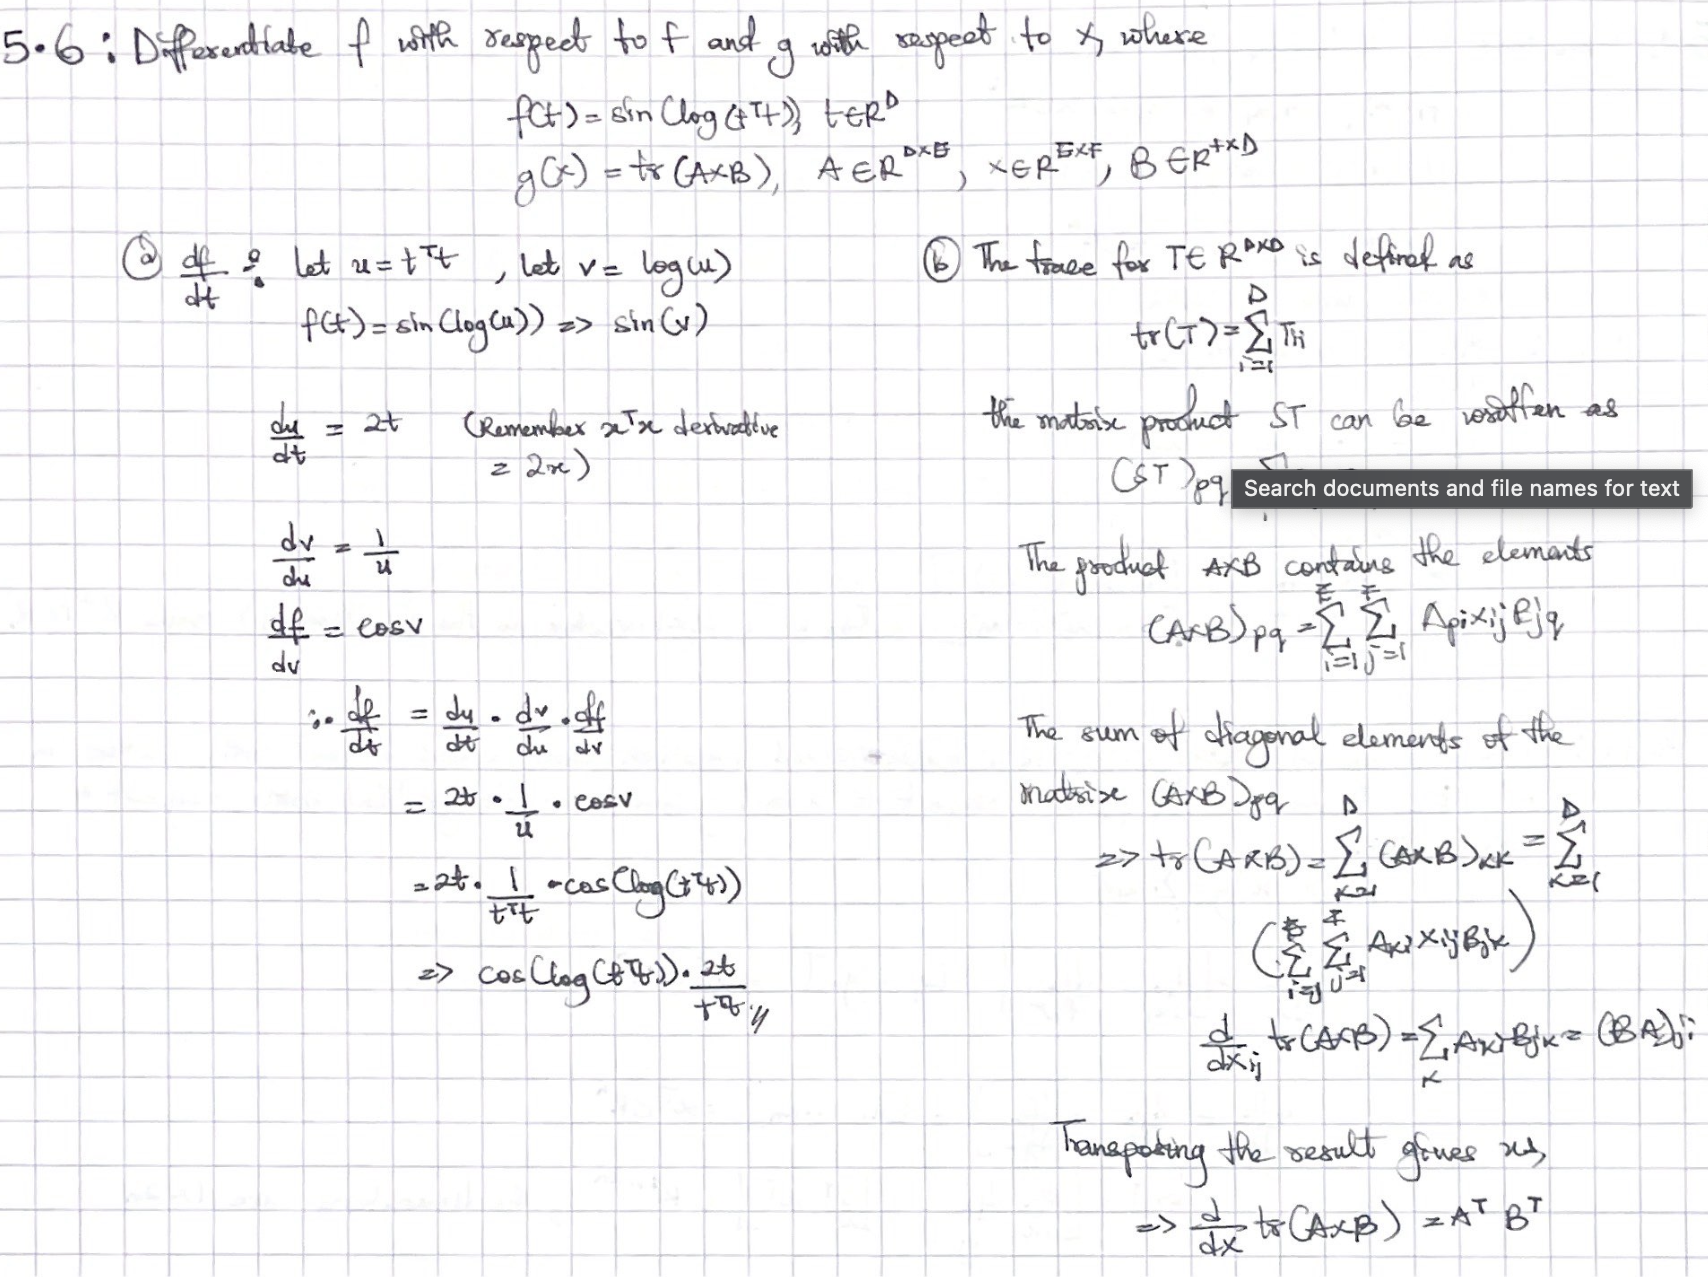 5.6: Differentiate f with respect to t and g with respect to X, where
f(t) = sin(log(tᵀt)), t∈Rᴰ
g(X) = tr(AXB), A∈R^{D×E}, X∈R^{E×F}, B∈R^{F×D}
ⓐ df/dt : let u = tᵀt , let v = log(u)
f(t) = sin(log(u)) => sin(v)
du/dt = 2t (Remember xᵀx derivative
= 2x)
dv/du = 1/u
df/dv = cosv
∴ df/dt = du/dt · dv/du · df/dv
= 2t · 1/u · cosv
= 2t · 1/tᵀt · cos(log(tᵀt))
=> cos(log(tᵀt)) · 2t/tᵀt //
ⓑ The trace for T∈R^{D×D} is defined as
tr(T) = Σ_{i=1}^{D} Tii
the matrix product ST can be written as
(ST)pq
Search documents and file names for text
The product AXB contains the elements
(AXB)pq = Σ_{i=1}^{E} Σ_{j=1}^{F} Api Xij Bjq
The sum of diagonal elements of the
matrix (AXB)pq
=> tr(AXB) = Σ_{k=1}^{D} (AXB)kk = Σ_{k=1}^{D}
(Σ_{i=1}^{E} Σ_{j=1}^{F} Aki Xij Bjk)
d/dXij tr(AXB) = Σ_k Aki Bjk = (BA)ji
Transposing the result gives us,
=> d/dX tr(AXB) = Aᵀ Bᵀ